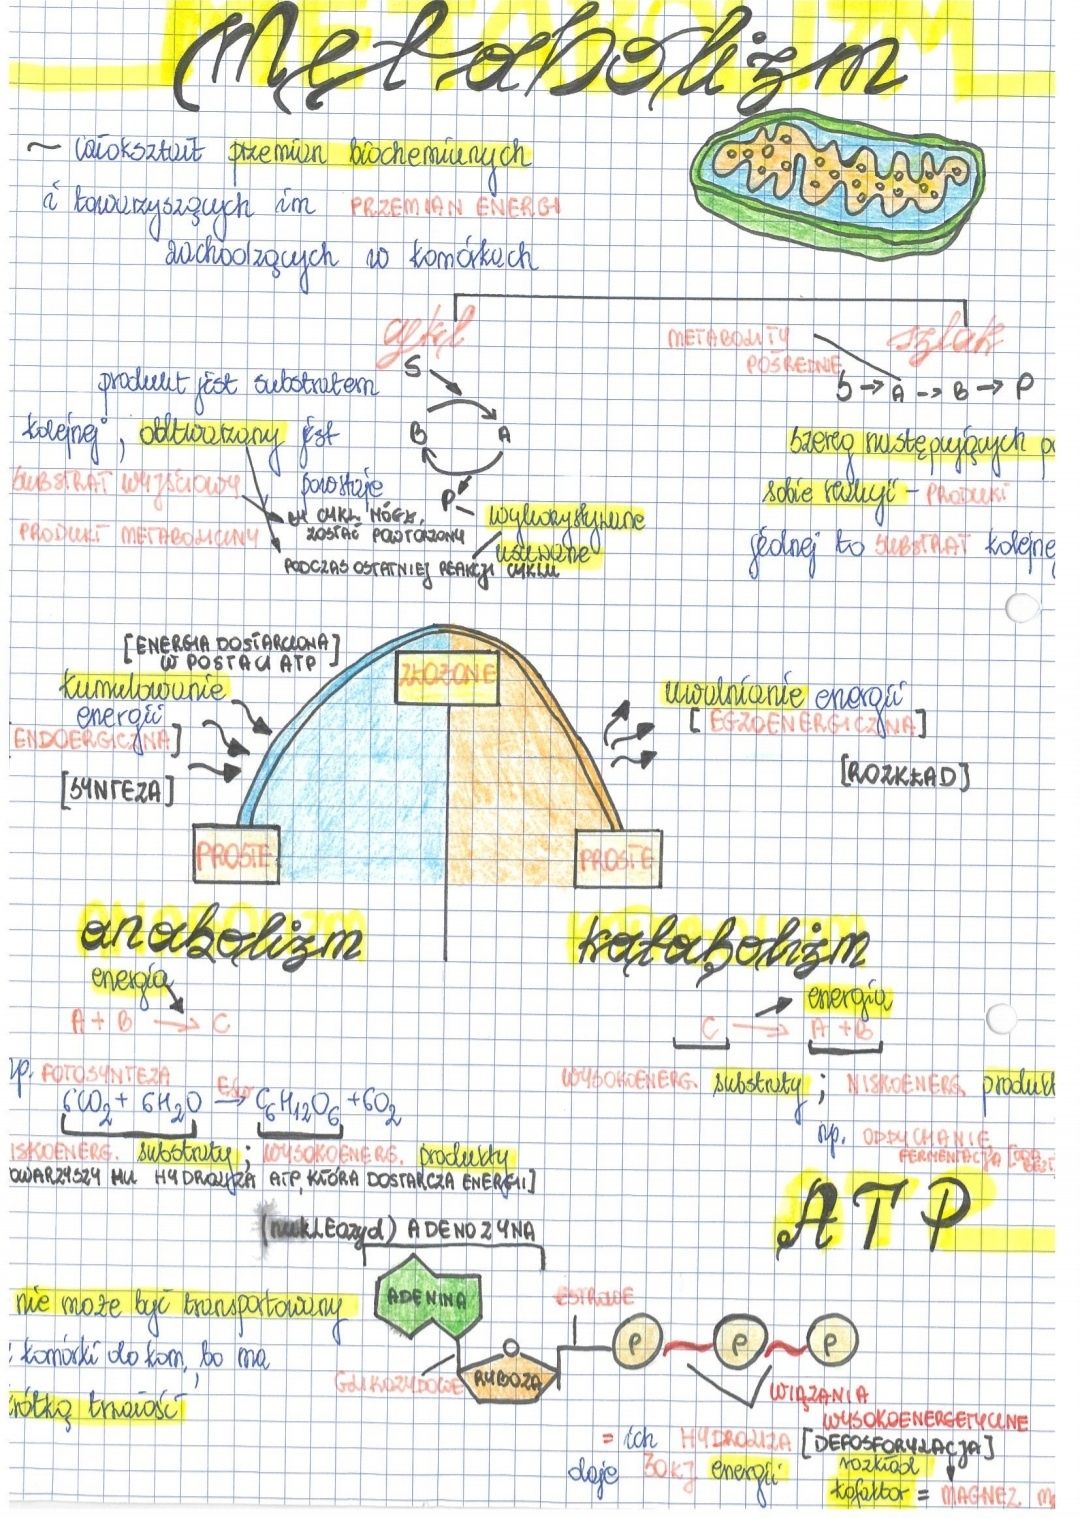 Metabolizm
~ całokształt przemian biochemicznych
i towarzyszących im PRZEMIAN ENERGI
zachodzących w komórkach
cykl
szlak
METABOLITY
POŚREDNIE
S → A → B → P
S
B A
P
produkt jest substratem
kolejnej, odtwarzany jest
SUBSTRAT WYJŚCIOWY
powstaje
CYKL MÓGŁ
ZOSTAĆ POWTÓRZONY
PRODUKT METABOLICZNY
PODCZAS OSTATNIEJ REAKCJI CYKLU
wykorzystywane
usuwane
szereg następujących po
sobie reakcji - PRODUKT
jednej to SUBSTRAT kolejnej
[ENERGIA DOSTARCZONA]
W POSTACI ATP
kumulowanie
energii
ENDOERGICZNA]
[SYNTEZA]
ZŁOŻONE
uwalnianie energii
[EGZOENERGICZNA]
[ROZKŁAD]
PROSTE
PROSTE
anabolizm
katabolizm
energia
A + B → C
energia
C → A + B
np. FOTOSYNTEZA
6CO2 + 6H2O → C6H12O6 + 6O2
ISKOENERG. substraty; WYSOKOENERG. produkty
OWARZYSZY MU HYDROLIZA ATP, KTÓRA DOSTARCZA ENERGII]
WYSOKOENERG. substraty; NISKOENERG. produkt
np. ODDYCHANIE
FERMENTACJA
ATP
(nukleozyd) ADENOZYNA
ADENINA
ESTROWE
P P P
GLIKOZYDOWE
RYBOZA
nie może być transportowany
komórki do kom, bo ma
rótką trwałość
WIĄZANIA
WYSOKOENERGETYCZNE
= ich HYDROLIZA [DEFOSFORYLACJA]
daje 30kJ energii
rozkład
kofaktor = MAGNEZ